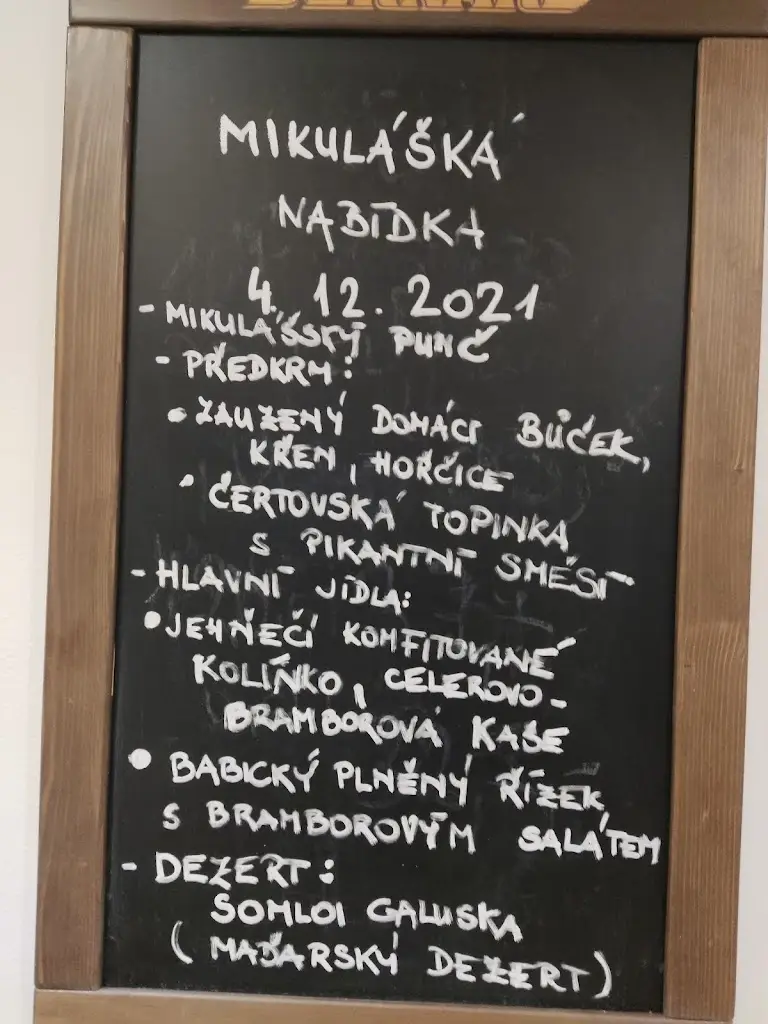 MIKULÁŠKÁ
NABÍDKA
4. 12. 2021
- MIKULÁŠSKÝ PUNČ
- PŘEDKRM:
• ZAUZENÝ DOMÁCÍ BŮČEK,
KŘEN, HOŘČICE
• ČERTOVSKÁ TOPINKA
S PIKANTNÍ SMĚSÍ
- HLAVNÍ JÍDLA:
• JEHŇEČÍ KOMFITOVANÉ
KOLÍŇKO, CELEROVO-
BRAMBOROVÁ KAŠE
• BABICKÝ PLNĚNÝ ŘÍZEK
S BRAMBOROVÝM SALÁTEM
- DEZERT:
SOMLOI GALUSKA
(MAĎARSKÝ DEZERT)